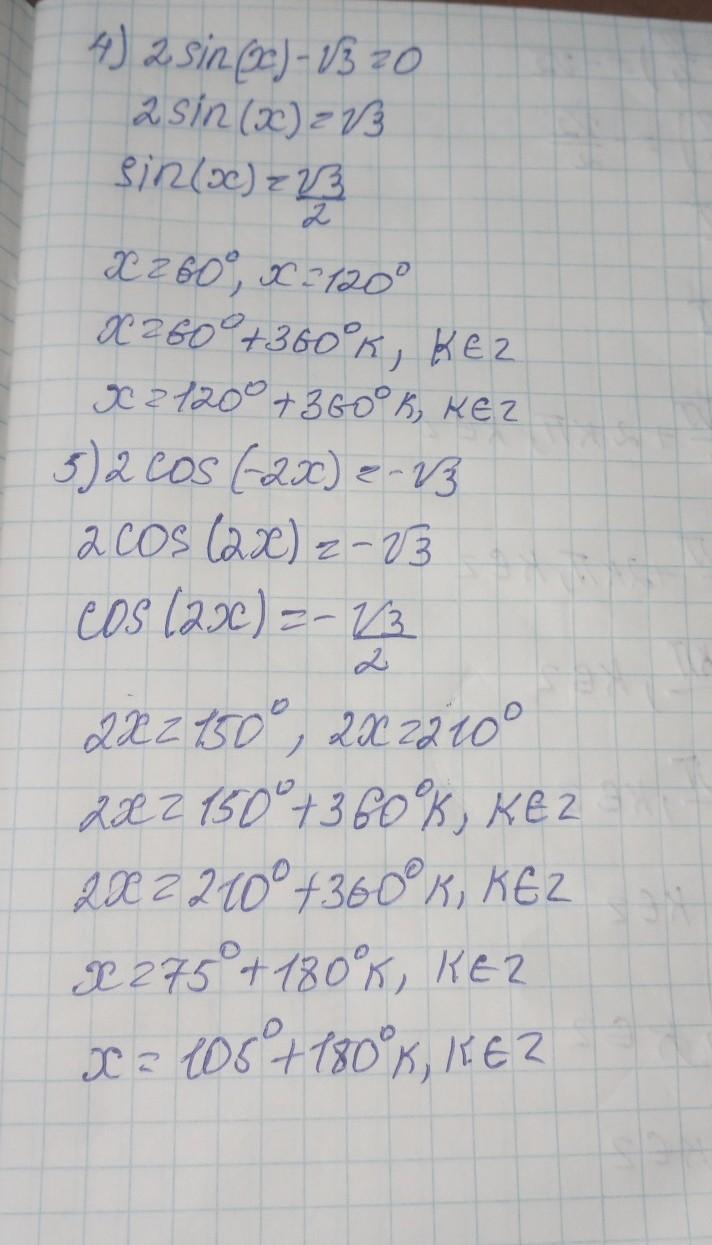 4) 2sin(x)-√3=0
2sin(x)=√3
sin(x)=√3/2
x=60°, x=120°
x=60°+360°k, k∈z
x=120°+360°k, k∈z
5) 2cos(-2x)=-√3
2cos(2x)=-√3
cos(2x)=-√3/2
2x=150°, 2x=210°
2x=150°+360°k, k∈z
2x=210°+360°k, k∈z
x=75°+180°k, k∈z
x=105°+180°k, k∈z